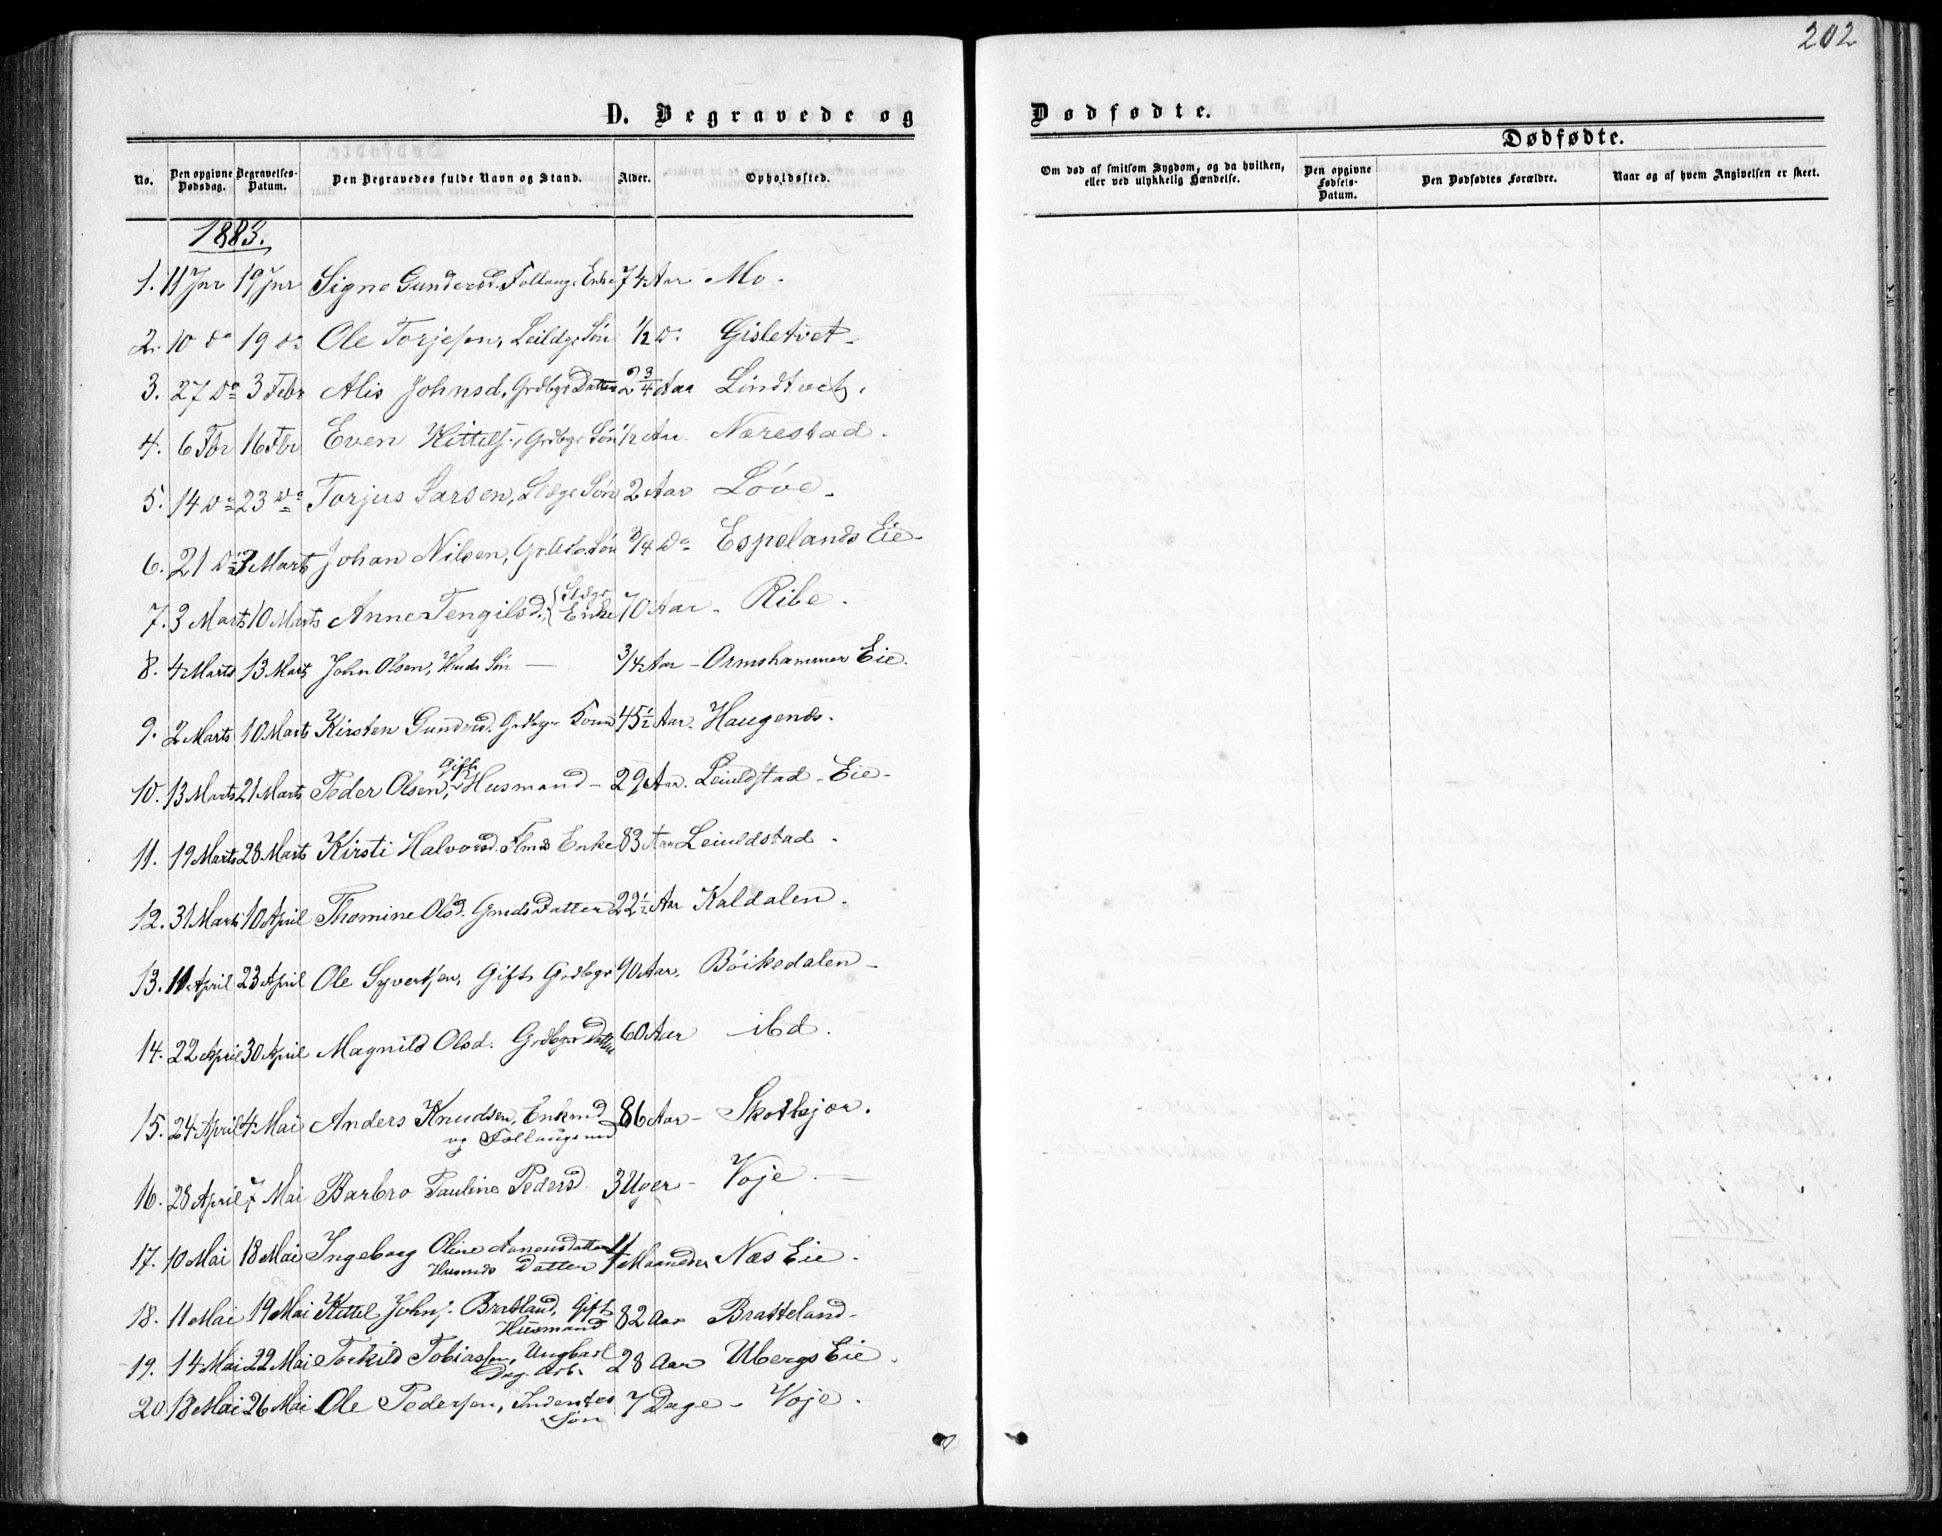 202
D. Begravede og
Dødfødte.
No.
Den opgivne Dødsdag.
Begravelses-Datum.
Den Begravedes fulde Navn og Stand.
Alder.
Opholdssted.
Om død af smitsom Sygdom, og da hvilken, eller ved ulykkelig Hændelse.
Dødfødte.
Den opgivne Fødsels-Datum.
Den Dødfødtes Forældre.
Naar og af hvem Angivelsen er skeet.
1883.
1. 11 Jnr 19 Jnr Signe Gundersd. Follaugs Enke 74 Aar Mo.
2. 10 do 19 do Ole Torjesen, Søn 1/2 do Gisletvet.
3. 27 do 3 Febr Alis Johnsd, Grdbgr Datter 2 3/4 Aar Lindtvet.
4. 6 Fbr 16 Fbr Even Kittels., Grdbgr Søn 1/2 Aar Nærestad.
5. 14 do 23 do Torjus Larsen, Søn 2 Aar Løve.
6. 21 do 3 Marts Johan Nilsen, Søn 3/4 do Espelands Eie.
7. 3 Marts 10 Marts Anne Tengilsd. Enke 70 Aar. Ribe.
8. 4 Marts 13 Marts John Olsen, Søn — 3/4 Aar - Ormshammer Eie.
9. 2 Marts 10 Marts Kirsten Gundersd. Grdbgr Kone 45 1/2 Aar. Haugenes.
10. 13 Marts 21 Marts Peder Olsen, Gift Husmand - 29 Aar. Leiuldstad Eie.
11. 19 Marts 28 Marts Kirsti Halvorsd. Enke 83 Aar Leiuldstad.
12. 31 Marts 10 April Thomine Olsd. Datter 22 1/2 Aar Kaldalen.
13. 11 April 23 April Ole Syvertsen, Gift Grdbgr 90 Aar. Bøikedalen
14. 22 April 30 April Magnild Olsd. Grdbgr Datter 60 Aar ibd.
15. 24 April 4 Mai Anders Knudsen, Enkmd 86 Aar - Skotkjær.
og Follaugsmd
16. 28 April 7 Mai Barbro Pauline Pedersd 3 Uger - Voje.
17. 10 Mai 18 Mai Ingeborg Oline Aanonsdatter 4 Maaneder Næs Eie.
Husmds Datter
18. 11 Mai 19 Mai Kittel Johns. Bratland, Gift 82 Aar Bratteland.
Husmand
19. 14 Mai 22 Mai Torkild Tobiassen, Ungkarl 28 Aar Ubergs Eie.
Dag. Arb.
20. 18 Mai 26 Mai Ole Pedersen, Inderstes 7 Dage - Voje.
Søn